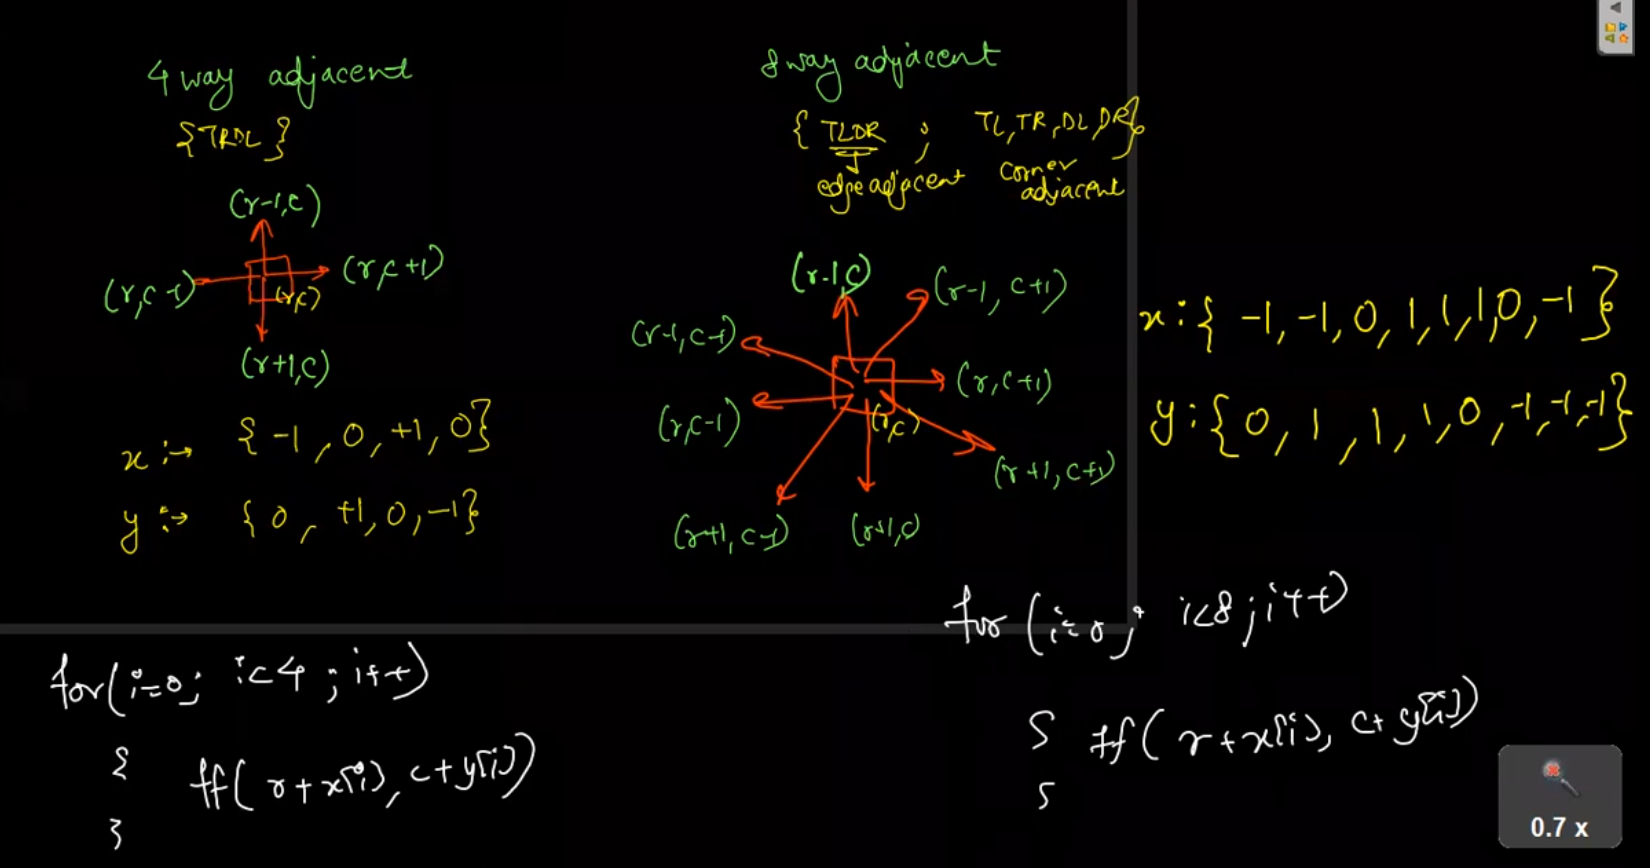 4 way adjacent
{TRDL}
(r-1,c)
(r,c-1)
(r,c+1)
(r,c)
(r+1,c)
x :→ {-1, 0, +1, 0}
y :→ {0, +1, 0, -1}
for(i=0; i<4; i++)
{
ff(r+x[i], c+y[i])
}
8way adjacent
{ TLDR ; TL, TR, DL, DR}
edge adjacent
corner
adjacent
(r-1,c)
(r-1, c+1)
(r-1, c-1)
(r, c+1)
(r,c-1)
(r,c)
(r+1, c+1)
(r+1, c-1)
(r+1,c)
x:{ -1, -1, 0, 1, 1, 1, 0, -1}
y:{ 0, 1, 1, 1, 0, -1, -1, -1}
for (i=0; i<8; i++)
ff( r+x[i], c+y[i])
0.7 x